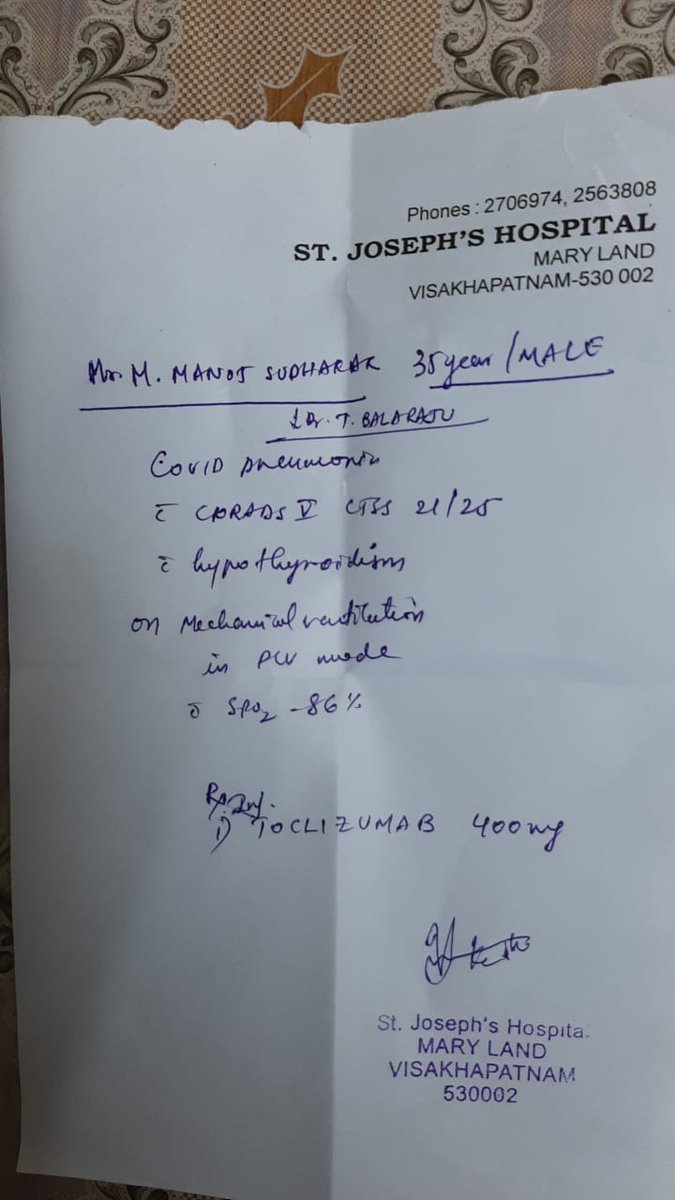 Phones : 2706974, 2563808
ST. JOSEPH'S HOSPITAL
MARY LAND
VISAKHAPATNAM-530 002
Mr. M. MANOJ SUDHAKAR 35 year/MALE
Dr. T. BALARAJU
Covid pneumonia
c̄ CORADS V CTSS 21/25
c̄ hypothyroidism
on Mechanical ventilation
in PCV mode
c̄ SPO2 -86%
Inj.
1) TOCLIZUMAB 400mg
St. Joseph's Hospital
MARY LAND
VISAKHAPATNAM
530002